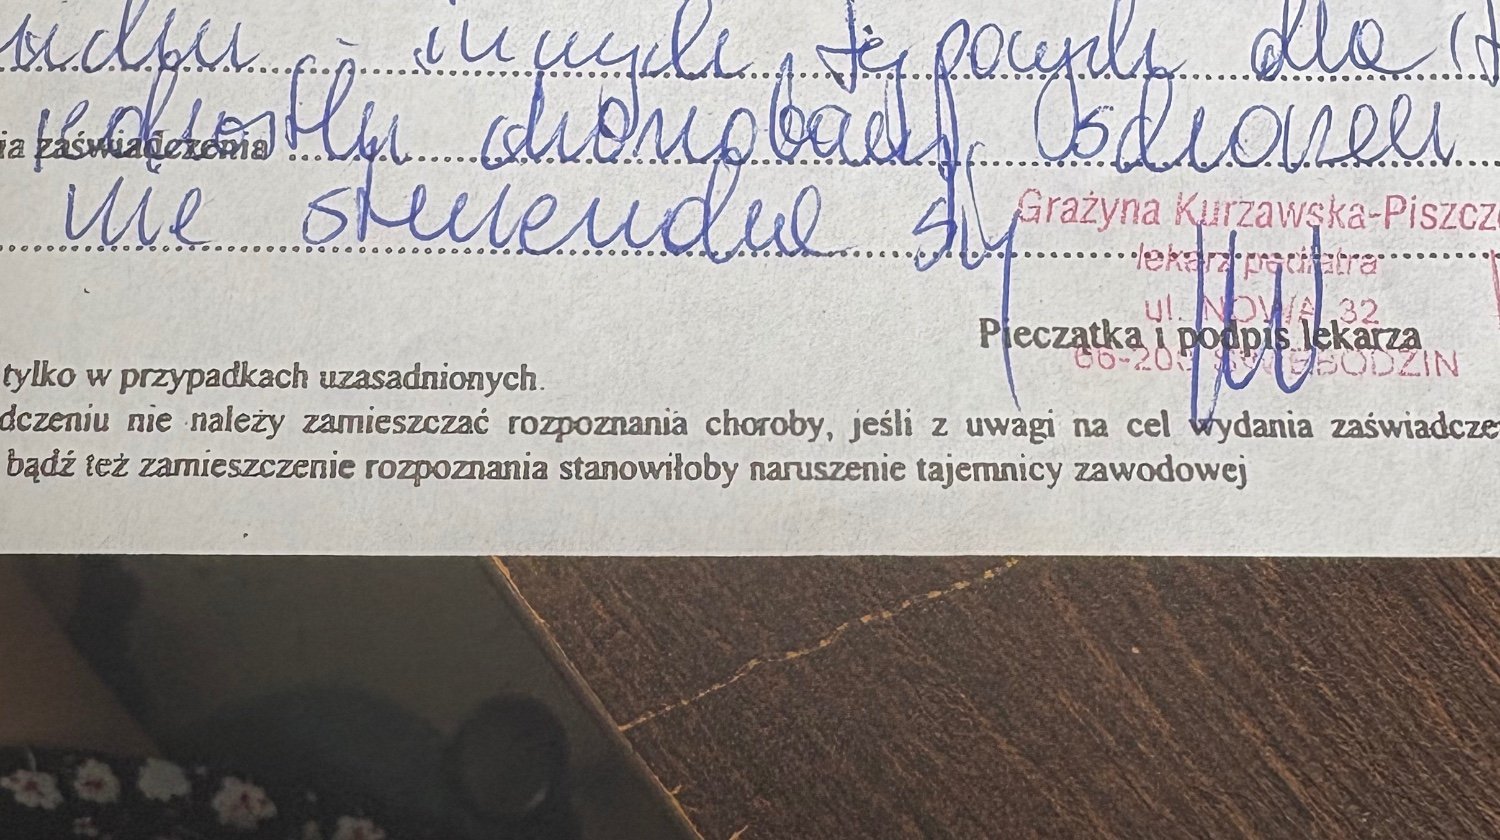 i innych, typowych dla
ia zaświadczenia
chorobach
nie stwierdza się
Grażyna Kurzawska-Piszcz
lekarz pediatra
ul. NOWA 32
Pieczątka i podpis lekarza
66-20 ŚWIEBODZIN
tylko w przypadkach uzasadnionych.
dczeniu nie należy zamieszczać rozpoznania choroby, jeśli z uwagi na cel wydania zaświadcze
bądź też zamieszczenie rozpoznania stanowiłoby naruszenie tajemnicy zawodowej